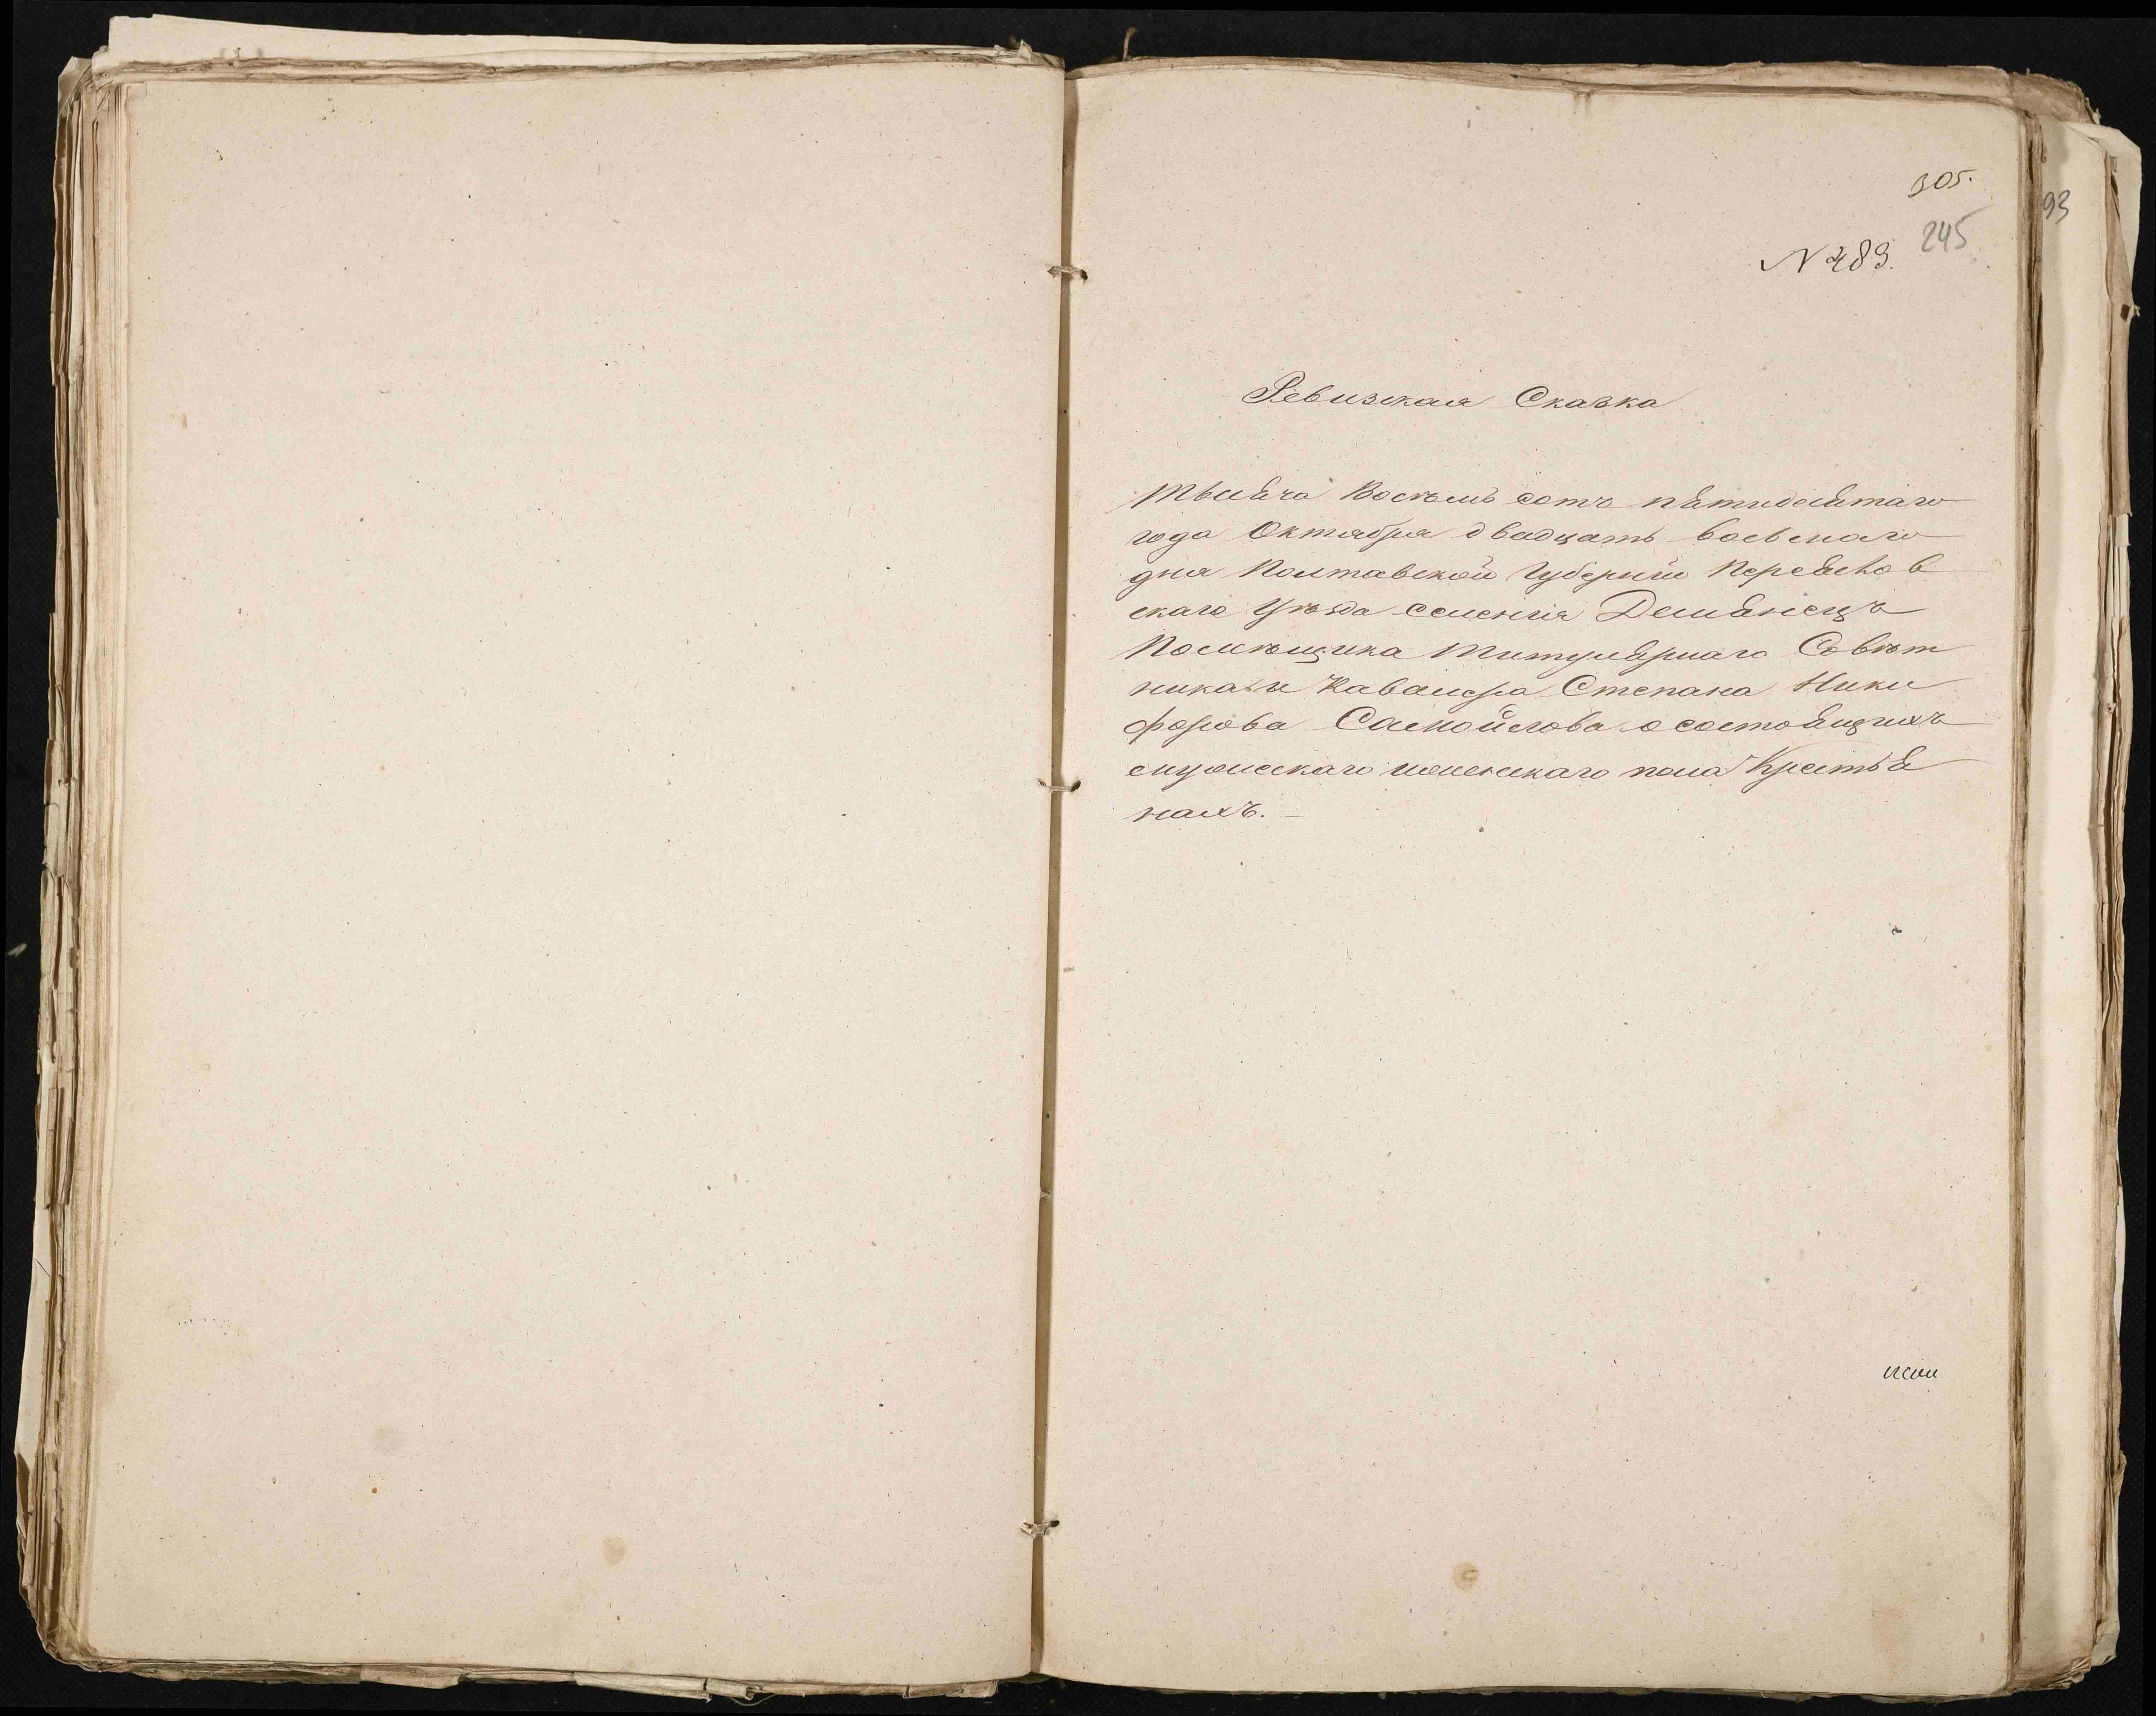 305.
93
245
N 489.
Ревизская Сказка
Тысяча Восѣмъ сотъ пятидесятаго
года Октября двадцать восьмаго
дня Полтавской Губерніи Переяслов
скаго Уѣзда селенія Демянецъ
Помѣщика Титулярнаго Совѣт
ника и Кавалера Степана Ники
форова Самойлова о состоящихъ
мужескаго и женскаго пола Крестья
нахъ.